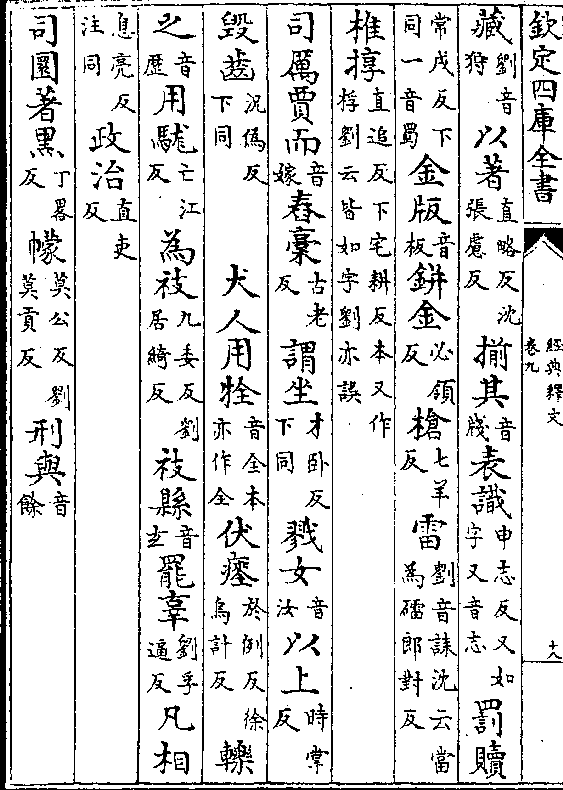 欽定四庫全書
經典釋文
卷九
十八
藏劉音狩以著直略反沈張慮反揃其音牋表識申志反又如字又音志罰贖
常戍反下同一音蜀金版音板鉼金必領反槍七羊反雷劉音誄沈云當為礌郎對反
椎椁直追反下宅耕反本又作桴劉云皆如字劉亦誤
司厲賈而音嫁舂稾古老反謂坐才卧反下同戮女音汝以上時掌反
毀齒況偽反下同犬人用牷音全本亦作全伏瘞於例反徐烏計反轢
之音歷用駹亡江反為衼九委反劉居綺反衼縣音玄罷辜劉孚逼反凡相
息亮反注同政治直吏反
司圜著黑丁畧反幪莫公反劉莫貢反刑與音餘